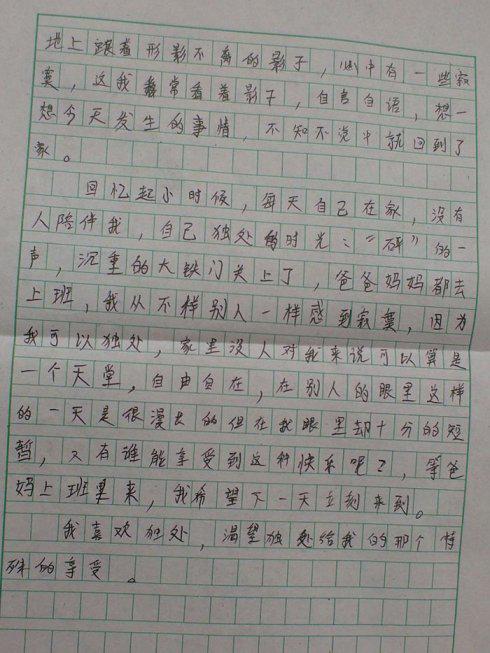 地上跟着形影不离的影子，心中有一些寂
寞，这我常常看着影子，自言自语，想一
想今天发生的事情，不知不觉中就回到了
家。
回忆起小时候，每天自己在家，没有
人陪伴我，自己独处的时光：“砰”的一
声，沉重的大铁门关上了，爸爸妈妈都去
上班，我从不样别人一样感到寂寞，因为
我可以独处，家里没人对我来说可以算是
一个天堂，自由自在，在别人的眼里这样
的一天是很漫长的但在我眼里却十分的短
暂，又有谁能享受到这种快乐呢？，等爸
妈上班里来，我希望下一天立刻来到。
我喜欢独处，渴望独处给我的那个特
殊的享受。